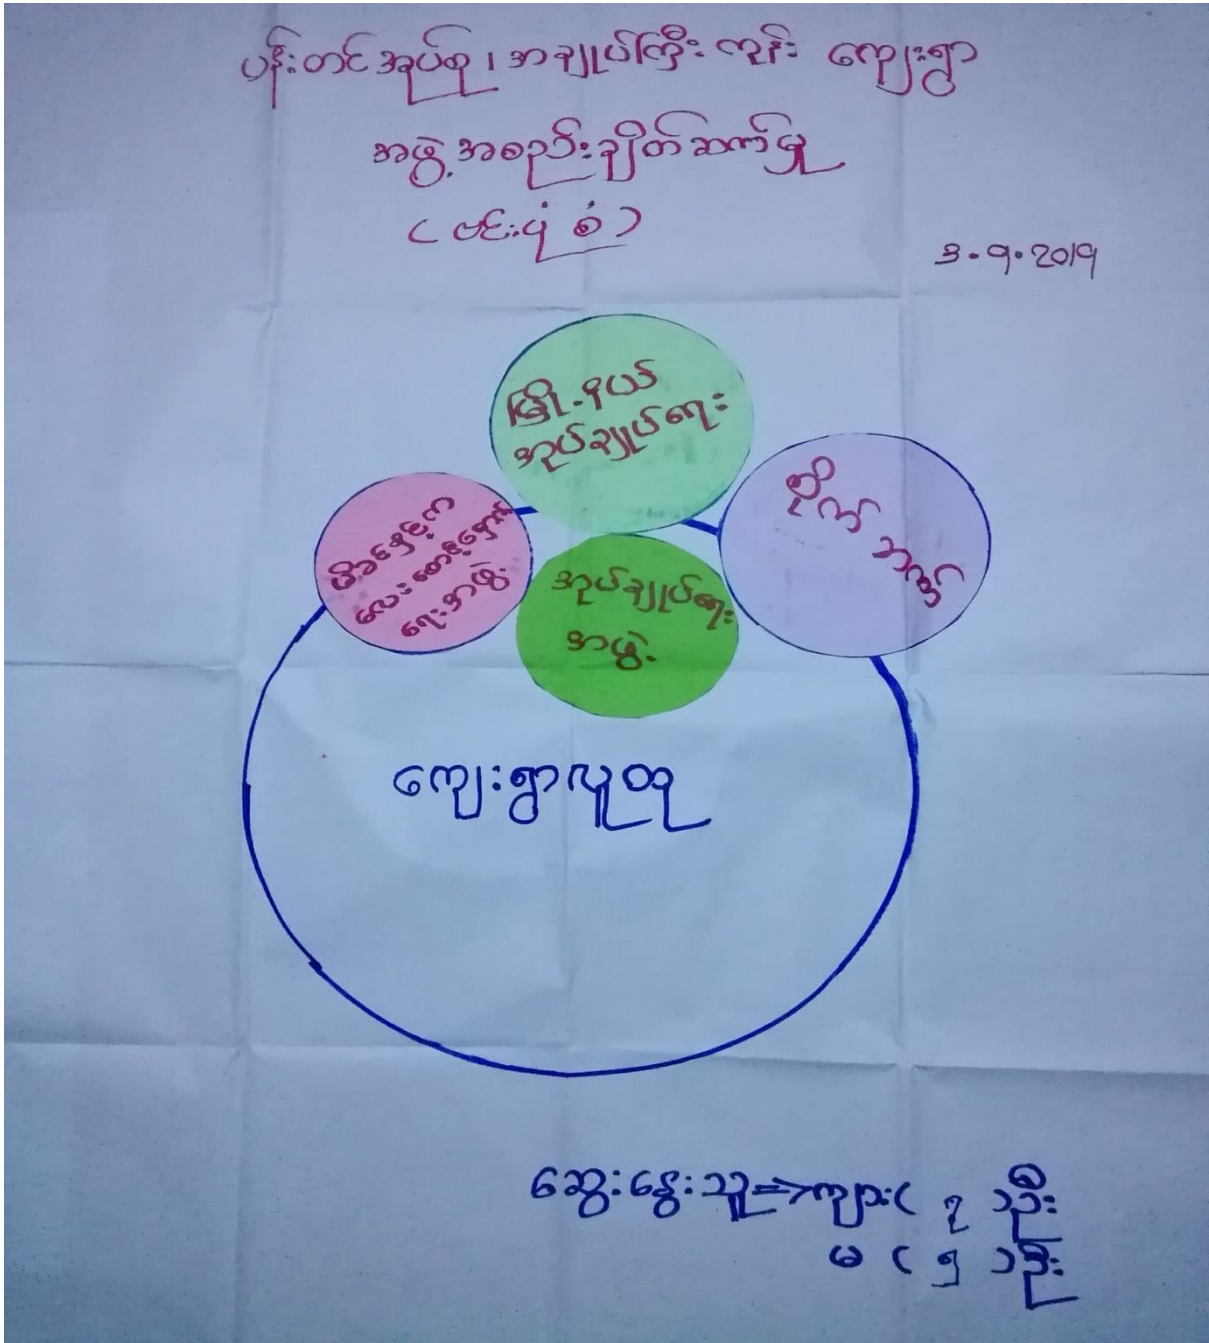 ပန်းတင်အုပ်စု၊ အချုပ်ကြီးကုန်း ကျေးရွာ
အဖွဲ့အစည်းချိတ်ဆက်မှု
(ဗင်းပုံစံ)
3.9.2019
မြို့နယ်
အုပ်ချုပ်ရေး
မိခင်နှင့်က
လေးစောင့်ရှောက်
ရေးအဖွဲ့
အုပ်ချုပ်ရေး
အဖွဲ့
စိုက်
ကျေးရွာလူထု
ဆွေးနွေးသူ=>ကျား( ၇ )ဦး
မ ( ၅ )ဦး